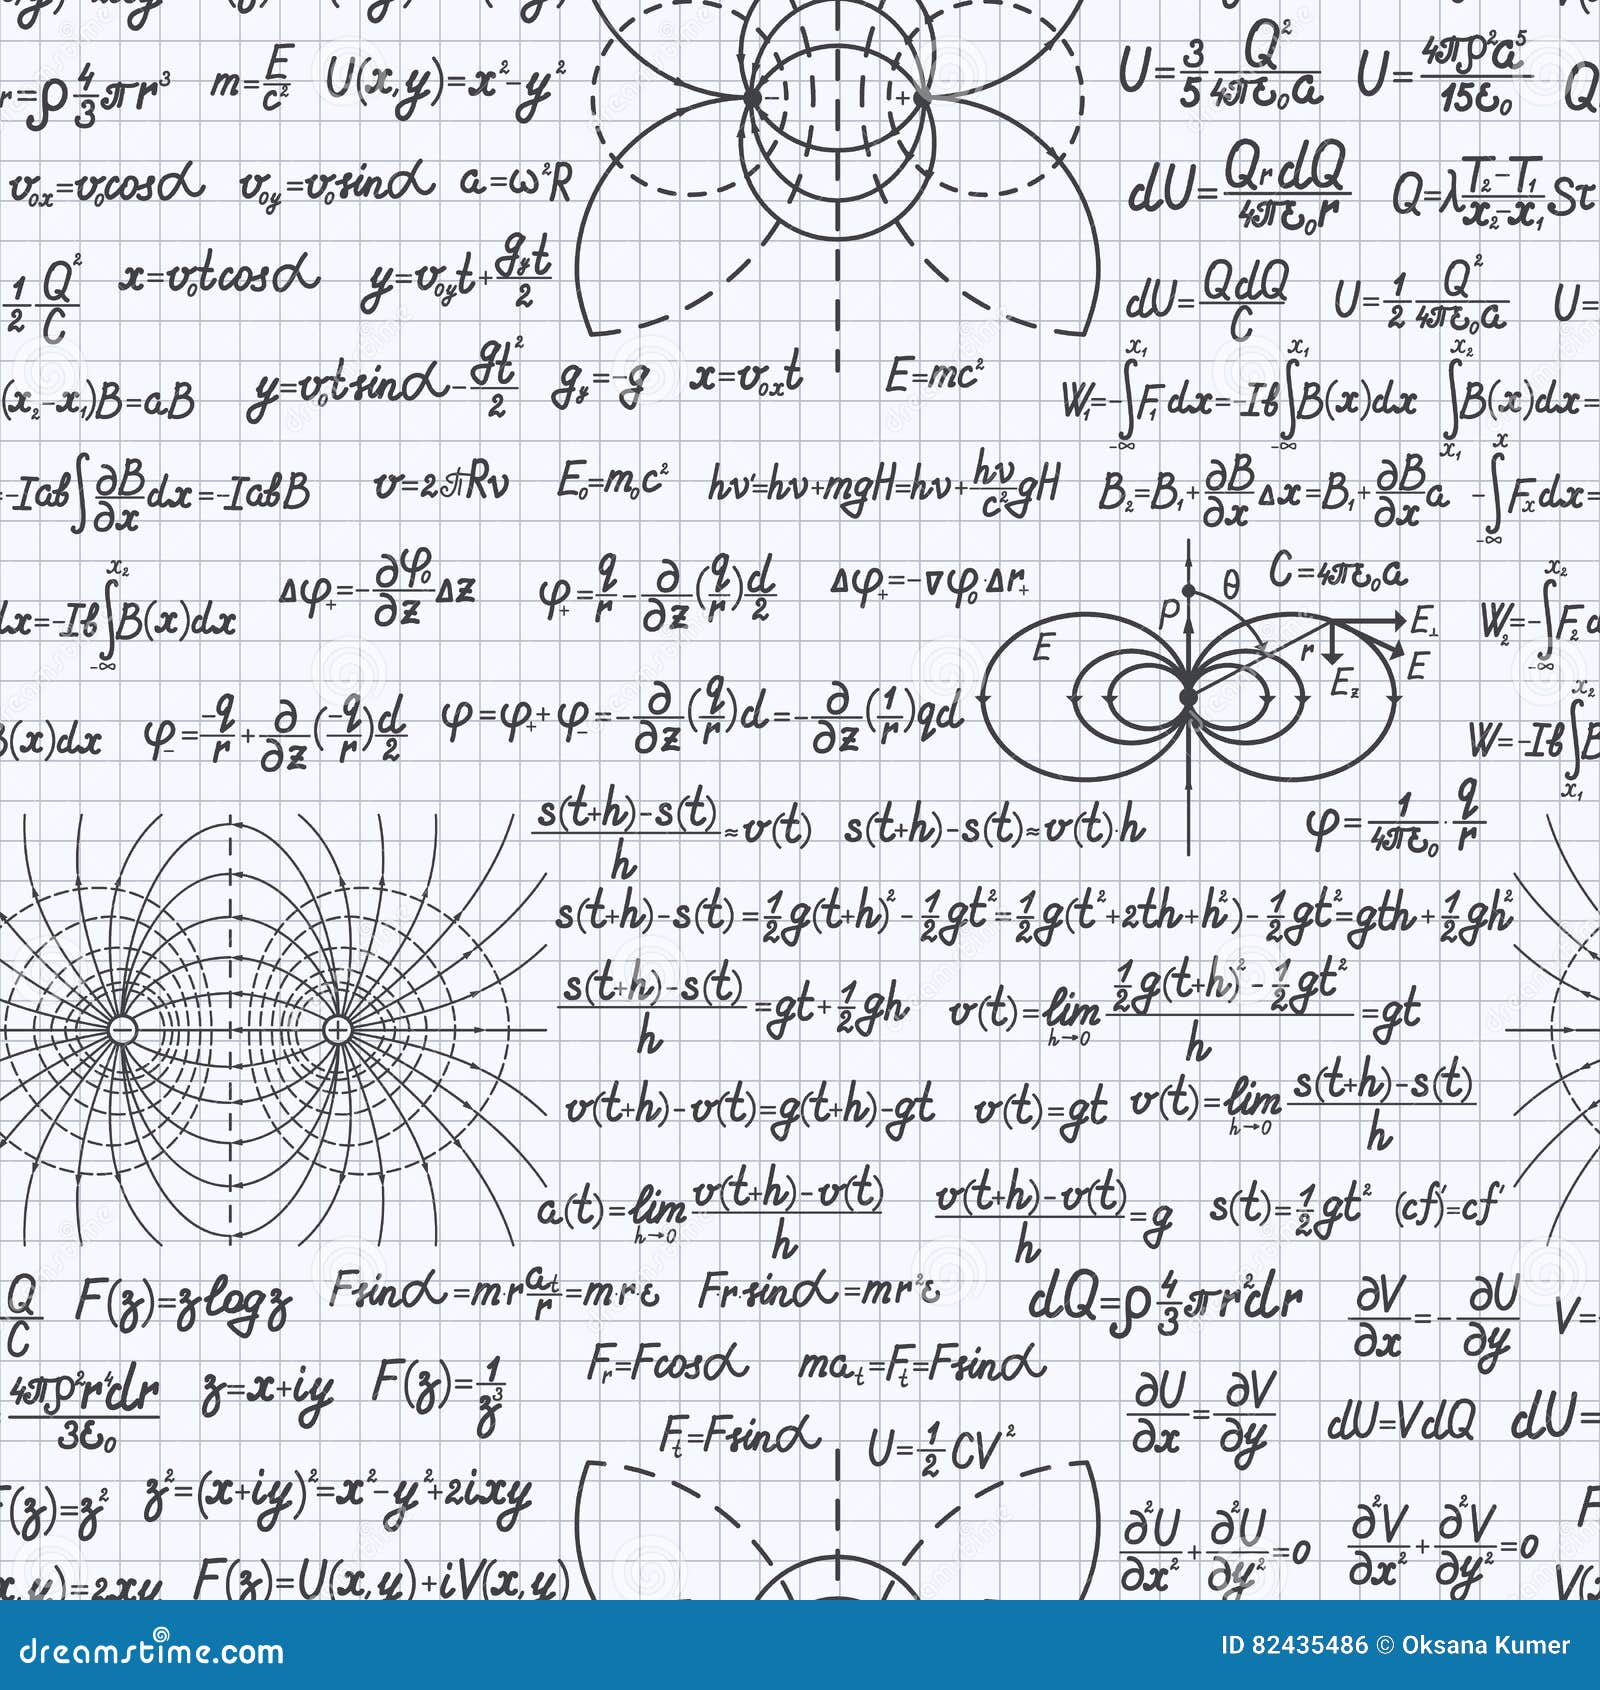 r=ρ 4/3 πr³ m=E/c² U(x,y)=x²-y² U=3/5 Q²/4πε₀a U=4πρ²a⁵/15ε₀ Q
v₀ₓ=v₀cosα v₀ᵧ=v₀sinα a=ω²R - + dU=QrdQ/4πε₀r Q=λ(T₂-T₁)/(x₂-x₁) Sτ
1/2 Q²/C x=v₀tcosα y=v₀ᵧt+gᵧt/2 dU=QdQ/C U=1/2 Q²/4πε₀a U=
(x₂-x₁)B=aB y=v₀tsinα-gt²/2 gᵧ=-g x=v₀ₓt E=mc² W₁=-∫_{-∞}^{x₁}F₁dx=-Ib∫_{-∞}^{x₁}B(x)dx ∫_{x₁}^{x₂}B(x)dx=
-Iab∫∂B/∂x dx=-IabB v=2πRν E₀=m₀c² hν'=hν+mgH=hν+hν/c² gH B₂=B₁+∂B/∂x Δx=B₁+∂B/∂x a -∫_{-∞}^{x}Fₓdx=
dx=-Ib∫_{-∞}^{x₂}B(x)dx Δφ₊=-∂φ₀/∂z Δz φ₊=q/r-∂/∂z(q/r)d/2 Δφ₊=-∇φ₀·Δr₊ C=4πε₀a W₂=-∫_{-∞}^{x₂}F₂d
P θ E r E⊥ E E_z
B(x)dx φ₋=-q/r+∂/∂z(-q/r)d/2 φ=φ₊+φ₋=-∂/∂z(q/r)d=-∂/∂z(1/r)qd W=-Ib∫_{x₁}^{x₂}B
(s(t+h)-s(t))/h≈v(t) s(t+h)-s(t)≈v(t)·h φ=1/4πε₀·q/r
s(t+h)-s(t)=1/2g(t+h)²-1/2gt²=1/2g(t²+2th+h²)-1/2gt²=gth+1/2gh²
(s(t+h)-s(t))/h=gt+1/2gh v(t)=lim_{h→0}(1/2g(t+h)²-1/2gt²)/h=gt
- +
v(t+h)-v(t)=g(t+h)-gt v(t)=gt v(t)=lim_{h→0}(s(t+h)-s(t))/h
a(t)=lim_{h→0}(v(t+h)-v(t))/h (v(t+h)-v(t))/h=g s(t)=1/2gt² (cf)'=cf'
Q/C F(z)=zlogz Fsinα=m·r aₜ/r=m·r·ε F·r·sinα=mr²ε dQ=ρ4/3πr²dr ∂V/∂x=-∂U/∂y V=
4πρ²r⁴dr/3ε₀ z=x+iy F(z)=1/z³ Fᵣ=Fcosα maₜ=Fₜ=Fsinα ∂U/∂x=∂V/∂y dU=VdQ dU=
Fₜ=Fsinα U=1/2CV²
F(z)=z² z²=(x+iy)²=x²-y²+2ixy ∂²U/∂x²+∂²U/∂y²=0 ∂²V/∂x²+∂²V/∂y²=0 F
x,y)=2xy F(z)=U(x,y)+iV(x,y)
dreamstime.com ID 82435486 © Oksana Kumer